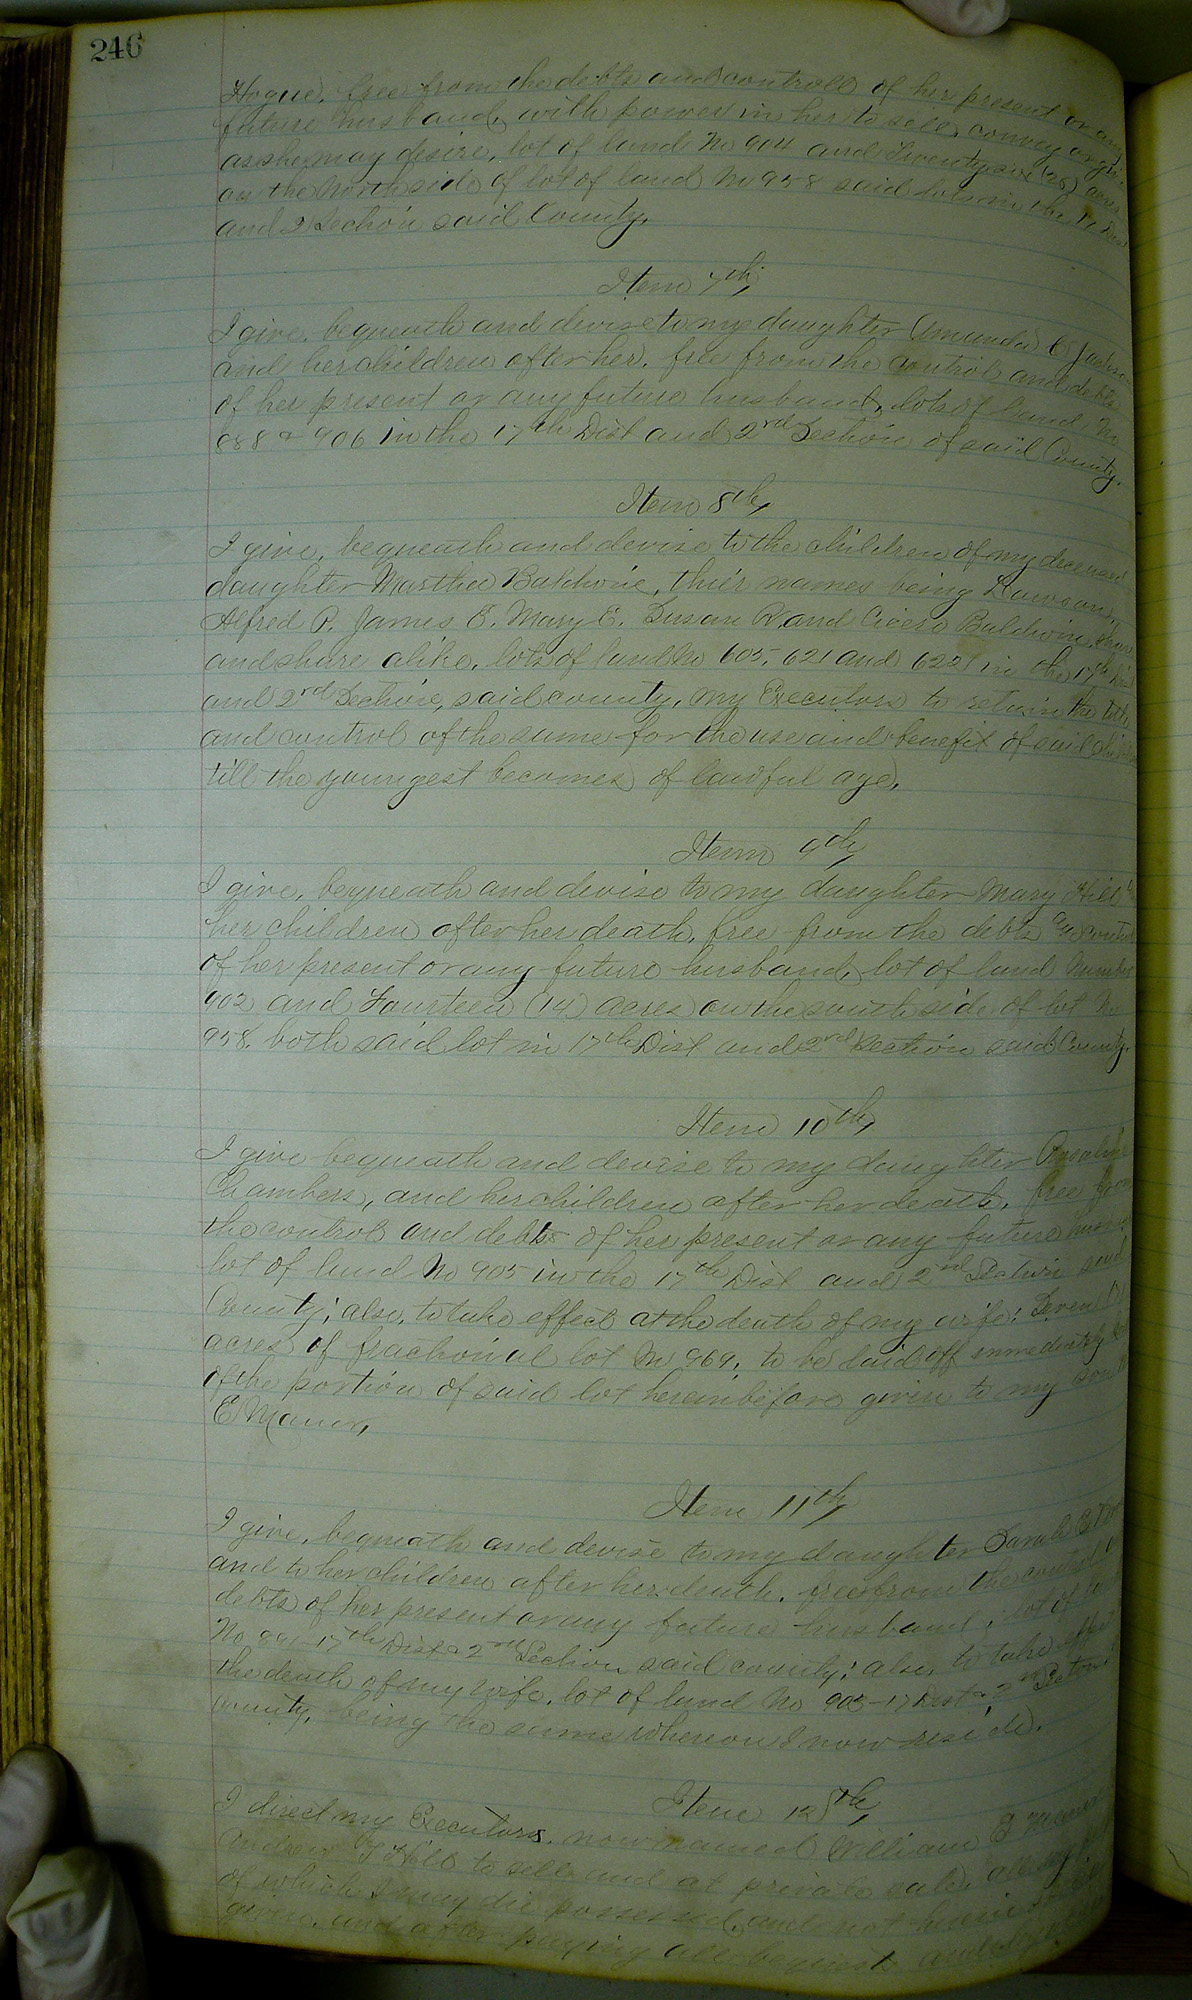 246
Hogue, free from the debts and controll of her present or any
future husband, with power in her to sell, convey or give
as she may desire, lot of land No 904 and Twenty six (26) acres
on the North side of lot of land No 958 said lots in the 17 Dist
and 2 Section said County.
Item 7th,
I give, bequeath and devise to my daughter Amanda C Jackson
and her children after her, free from the control and debts
of her present or any future husband, lots of land No
888 & 906 in the 17th Dist and 2nd Section of said County.
Item 8th,
I give, bequeath and devise to the children of my deceased
daughter Martha Baldwin, their names being Dawson,
Alfred P. James E. Mary E. Susan R. and Cicero Baldwin, share
and share alike, lots of land No 605, 621 and 622 in the 17th Dist
and 2nd Section, said county, my Executors to retain the title
and control of the same for the use and benefit of said children
till the youngest becomes of lawful age.
Item 9th,
I give, bequeath and devise to my daughter Mary Hill &
her children after her death, free from the debts and control
of her present or any future husband, lot of land Number
902 and Fourteen (14) acres on the south side of lot No
958, both said lot in 17th Dist and 2nd Section said County.
Item 10th,
I give bequeath and devise to my daughter
Chambers, and her children after her death, free from
the control and debts of her present or any future husband
lot of land No 905 in the 17th Dist and 2nd Section said
County; also, to take effect at the death of my wife; Seven (7)
acres of fractional lot No 969, to be laid off immediately
of the portion of said lot hereinbefore given to my son
E Manor,
Item 11th,
I give, bequeath and devise to my daughter Sarah E
and to her children after her death, free from the control &
debts of her present or any future husband; lot of land
No 841 - 17th Dist & 2nd Section said county; also, to take effect
the death of my wife, lot of land No 903 - 17 Dist & 2nd Section
County, being the same whereon I now reside.
Item 12th,
I direct my Executors, now named William J Manor
Andrew J Hill to sell and at private sale, all my
of which I may die possessed, and not herein
given, and after paying all bequest and